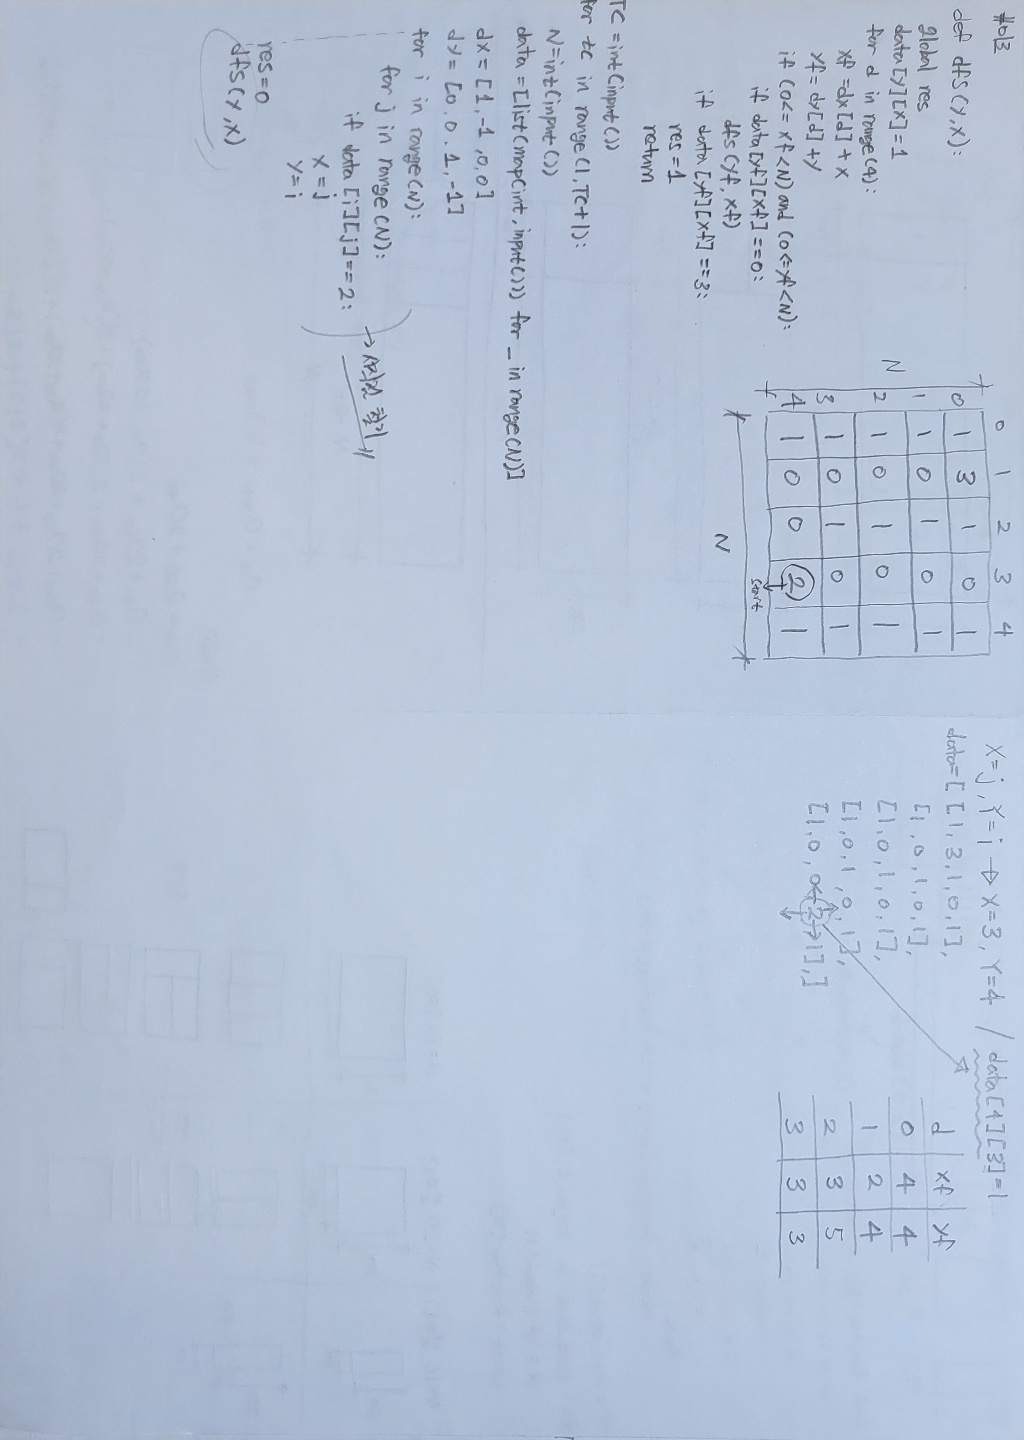 #013
def dfs(y,x):
global res
data[y][x]=1
for d in range(4):
xf =dx[d]+x
yf= dy[d]+y
if (0<= xf<N) and (0<=yf<N):
if data[yf][xf]==0:
dfs(yf, xf)
if data[yf][xf]==3:
res=1
return
TC =int(input())
for tc in range(1,TC+1):
N=int(input())
data =[list(map(int, input())) for _ in range(N)]
dx= [1,-1,0,0]
dy= [0.0.1,-1]
for i in range(N):
for j in range(N):
if data[i][j]==2:
x=j
y=i
→ 시작점 찾기
res=0
dfs(y,x)
0 1 2 3 4
0 1 3 1 0 1
1 1 0 1 0 1
N
2 1 0 1 0 1
3 1 0 1 0 1
4 1 0 0 2 1
start
N
X=j, Y=i → X=3, Y=4 / data[4][3]=1
data=[[1,3,1,0,1],
[1,0,1,0,1],
[1,0,1,0,1],
[1,0,1,0,1],
[1.0,0←2→1],]
d xf yf
0 4 4
1 2 4
2 3 5
3 3 3